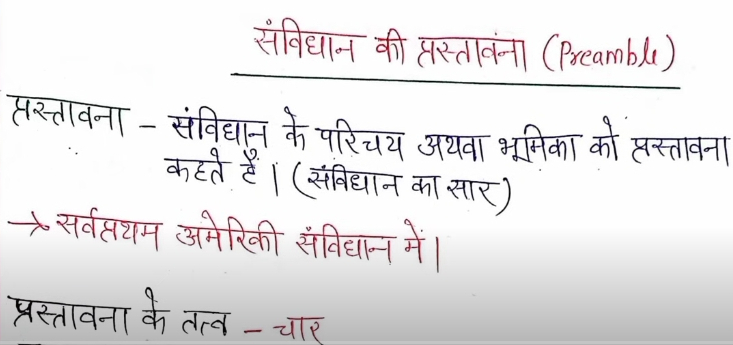 संविधान की प्रस्तावना (Preamble)
प्रस्तावना – संविधान के परिचय अथवा भूमिका को प्रस्तावना
कहते हैं। (संविधान का सार)
→ सर्वप्रथम अमेरिकी संविधान में।
प्रस्तावना के तत्व – चार